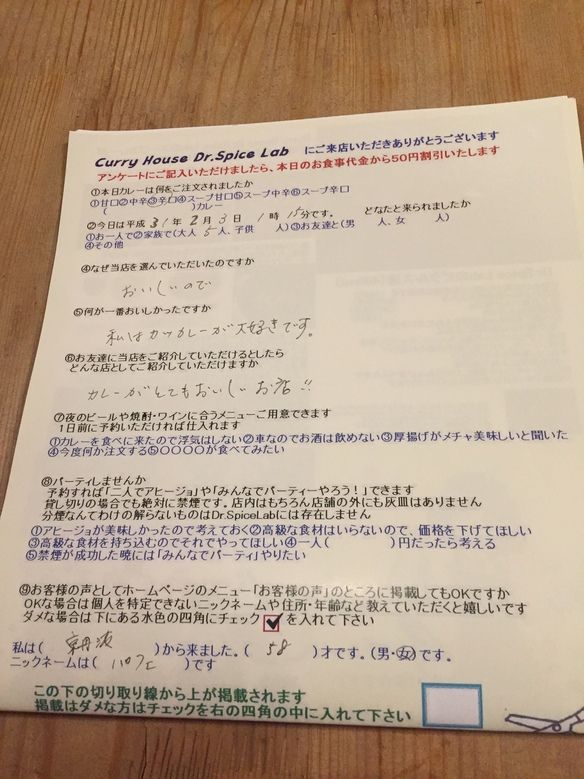 Curry House Dr.Spice Lab にご来店いただきありがとうございます
アンケートにご記入いただけましたら、本日のお食事代金から50円割引いたします
①本日カレーは何をご注文されましたか
①甘口②中辛③辛口④スープ甘口⑤スープ中辛⑥スープ辛口
( )カレー
②今日は平成 31 年 2 月 3 日 1 時 15 分です。 どなたと来られましたか
①お一人で②家族で(大人 5 人、子供 人)③お友達と(男 人、女 人)
④その他
④なぜ当店を選んでいただいたのですか
おいしいので
⑤何が一番おいしかったですか
私はカツカレーが大好きです。
⑥お友達に当店をご紹介していただけるとしたら
どんな店としてご紹介していただけますか
カレーがとてもおいしいお店!!
⑦夜のビールや焼酎・ワインに合うメニューご用意できます
1日前に予約いただければ仕入れます
①カレーを食べに来たので浮気はしない②車なのでお酒は飲めない③厚揚げがメチャ美味しいと聞いた
④今度何か注文する⑤〇〇〇〇が食べてみたい
⑧パーティしませんか
予約すれば「二人でアヒージョ」や「みんなでパーティーやろう!」できます
貸し切りの場合でも絶対に禁煙です。店内はもちろん店舗の外にも灰皿はありません
分煙なんてわけの解らないものはDr.SpiceLabには存在しません
①アヒージョが美味しかったので考えておく②高級な食材はいらないので、価格を下げてほしい
③高級な食材を持ち込むのでそれでやってほしい④一人( )円だったら考える
⑤禁煙が成功した暁には「みんなでパーティ」やりたい
⑨お客様の声としてホームページのメニュー「お客様の声」のところに掲載してもOKですか
OKな場合は個人を特定できないニックネームや住所・年齢など教えていただくと嬉しいです
ダメな場合は下にある水色の四角にチェック を入れて下さい
私は( 京丹波 )から来ました。( 58 )才です。(男・女)です。
ニックネームは( パフェ )です
この下の切り取り線から上が掲載されます
掲載はダメな方はチェックを右の四角の中に入れて下さい